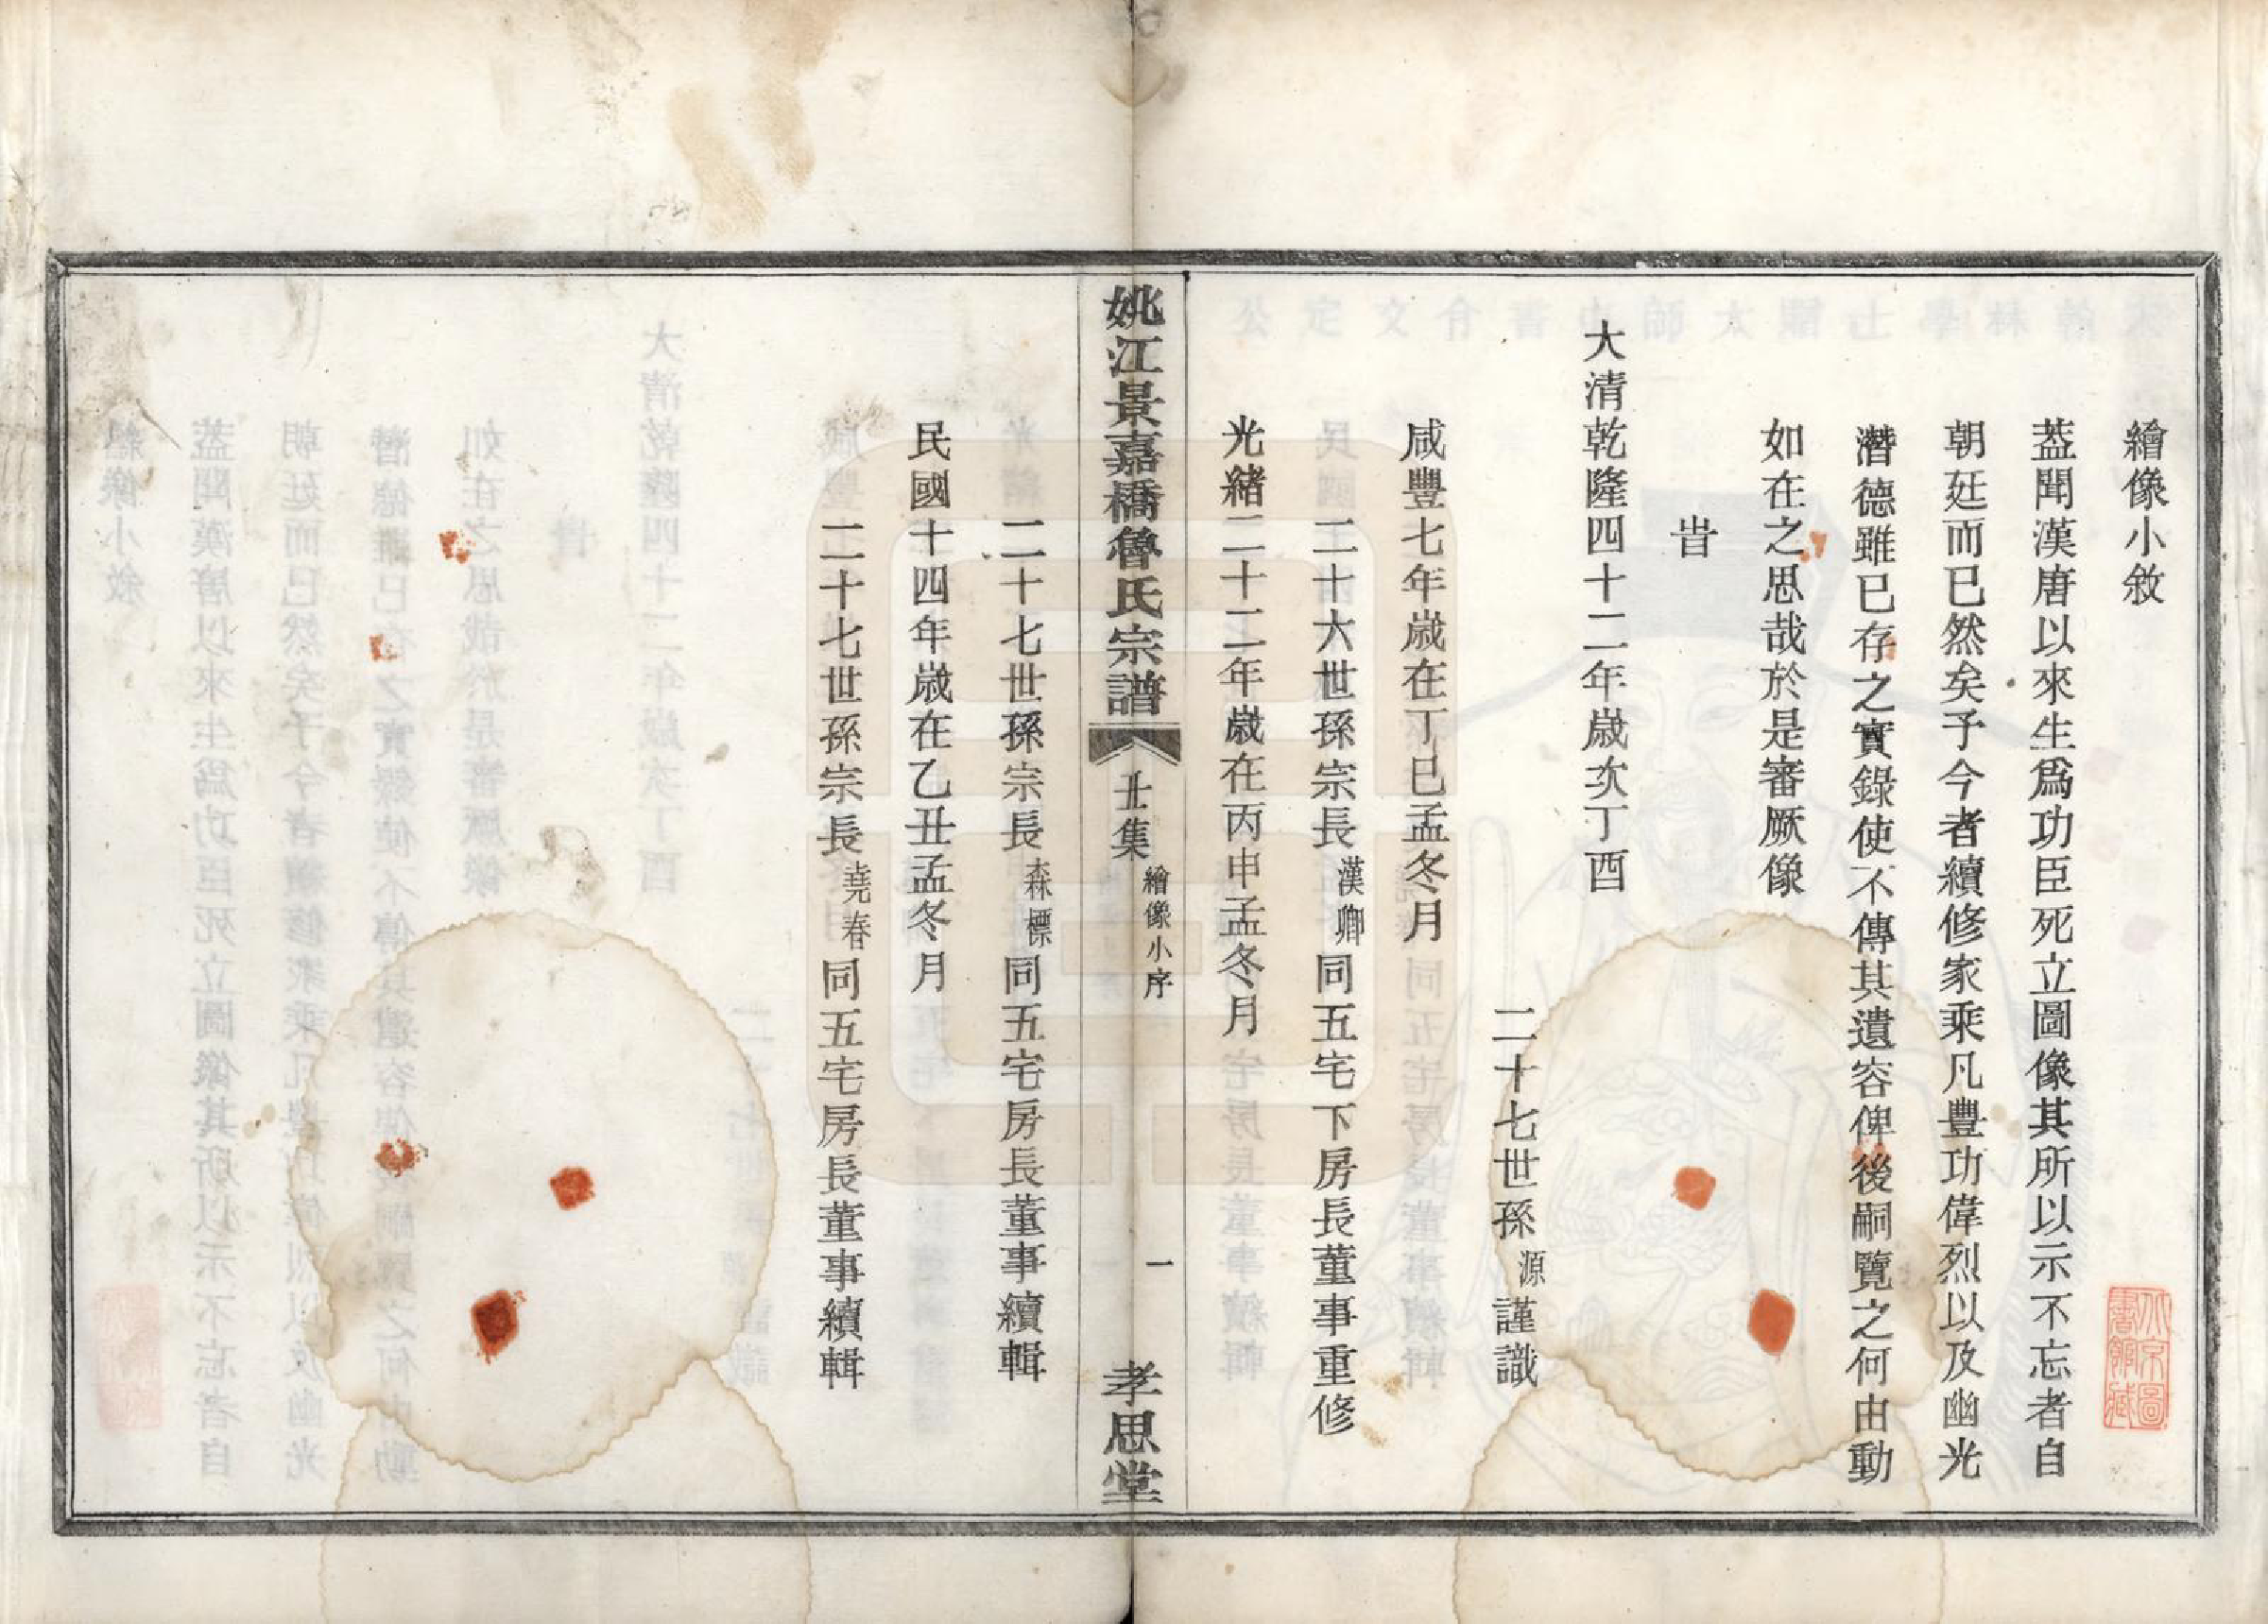 繪像小敘
葢聞漢唐以來生爲功臣死立圖像其所以示不忘者自
朝廷而已然矣予今者續修家乘凡豐功偉烈以及幽光
潛德雖已存之實錄使不傳其遺容俾後嗣覽之何由動
如在之思哉於是審厥像
旹
大清乾隆四十二年歲次丁酉
二十七世孫源謹識
咸豐七年歲在丁巳孟冬月
二十六世孫宗長漢卿同五宅下房長董事重修
光緒二十二年歲在丙申孟冬月
姚江景嘉橋魯氏宗譜
集
繪像小序
一
孝思堂
二十七世孫宗長森標同五宅房長董事續輯
民國十四年歲在乙丑孟冬月
二十七世孫宗長堯春同五宅房長董事續輯